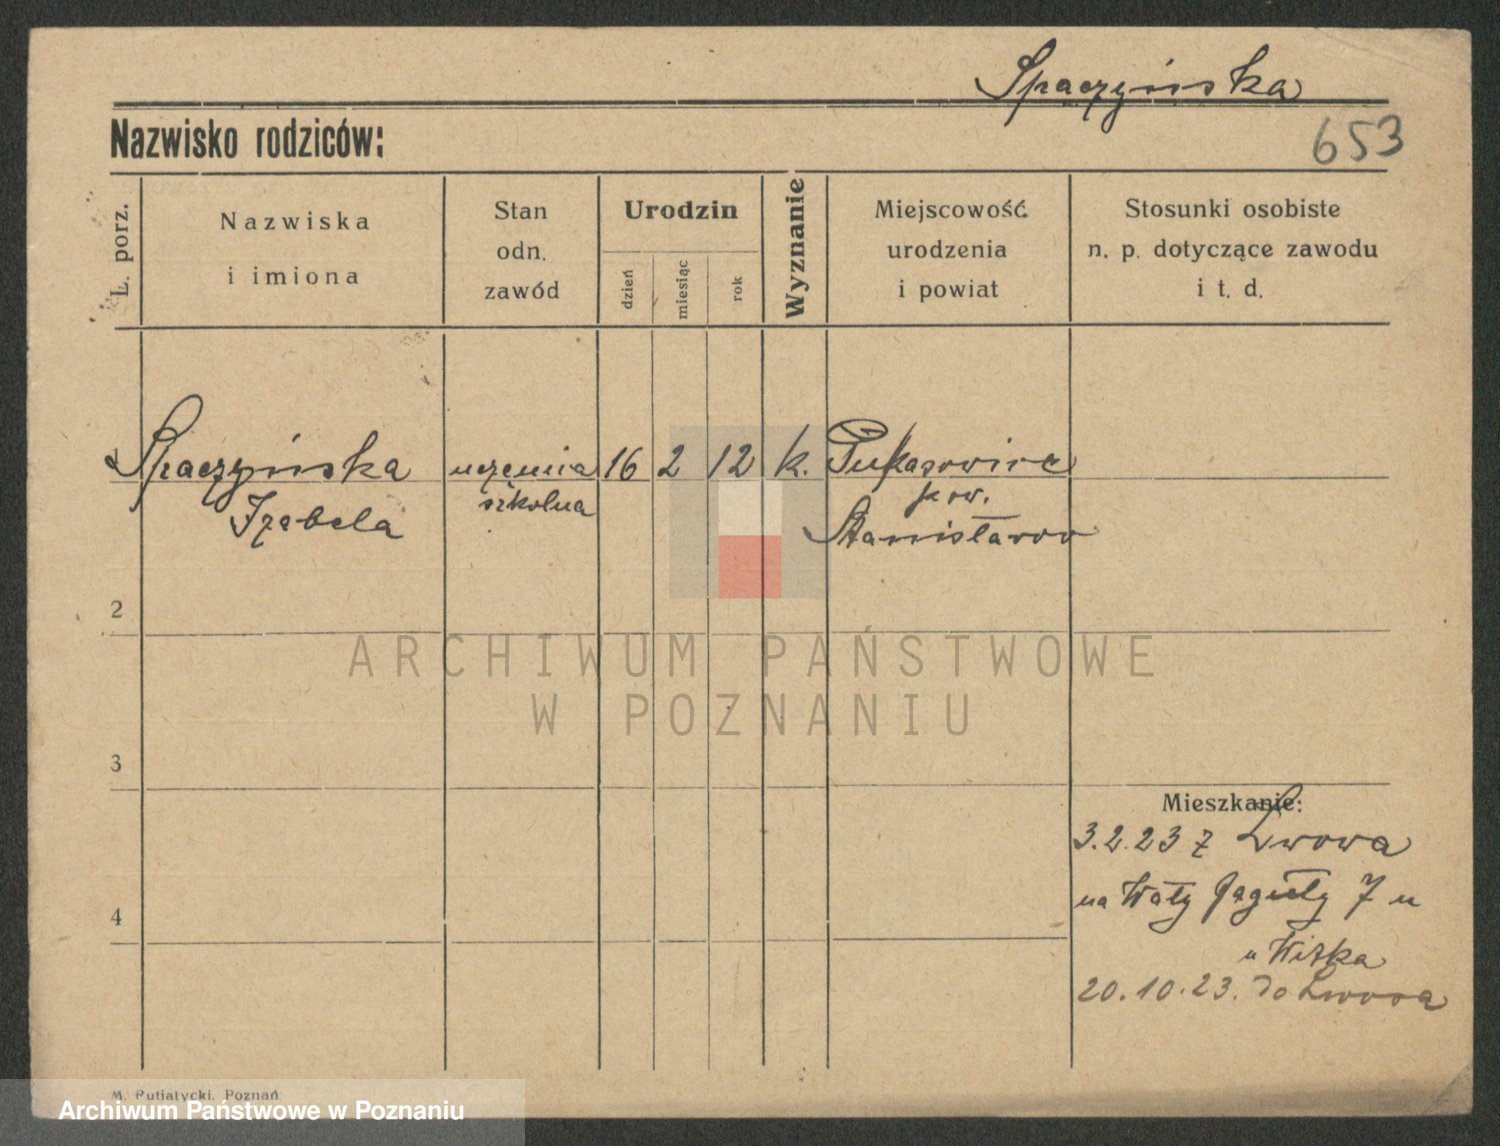 Spączyńska
653
Nazwisko rodziców:
L. porz.
Nazwiska
i imiona
Stan
odn.
zawód
Urodzin
dzień
miesiąc
rok
Wyznanie
Miejscowość
urodzenia
i powiat
Stosunki osobiste
n. p. dotyczące zawodu
i t. d.
1 Spaczyńska uczenica 16 2 12 k.
Izabela szkolna
pow.
Stanisławow
2
ARCHIWUM PAŃSTWOWE
W POZNANIU
3
Mieszkanie:
3.2.23 z Lwowa
na Wały Jagiełły 7 u
u Witka
20.10.23. do Lwowa
4
M. Putiatycki, Poznań
Archiwum Państwowe w Poznaniu